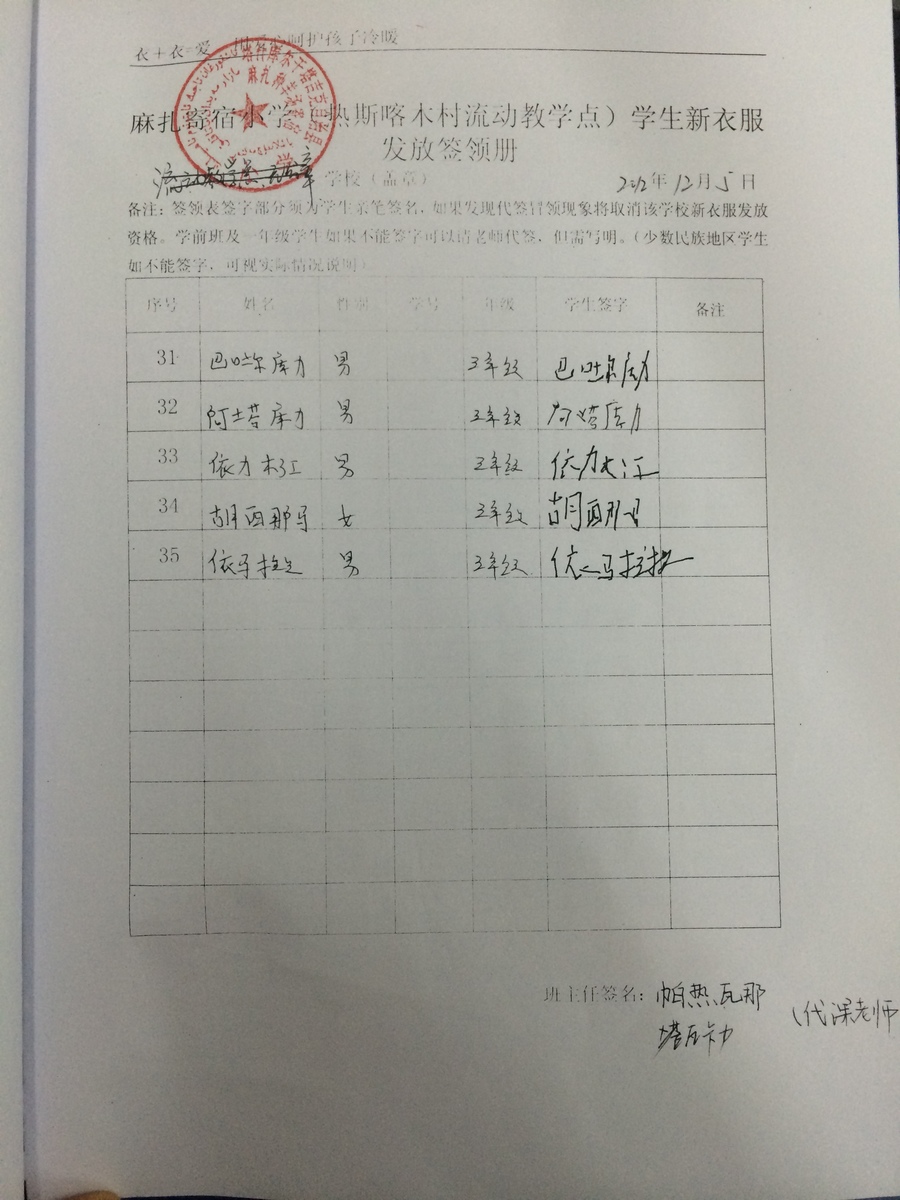 衣+衣=爱 呵护孩子冷暖
麻扎寄宿小学（热斯喀木村流动教学点）学生新衣服
发放签领册
学校（盖章） 2012年12月5日
备注：签领表签字部分须为学生亲笔签名，如果发现代签冒领现象将取消该学校新衣服发放
资格。学前班及一年级学生如果不能签字可以请老师代签，但需写明。（少数民族地区学生
如不能签字，可视实际情况说明）
序号 姓名 性别 学号 年级 学生签字 备注
31 巴吐尔库力 男 3年级 巴吐尔库力
32 阿土塔库力 男 3年级 库力
33 依力木江 男 3年级 依力木江
34 胡西那马 女 3年级 胡西那马
35 依马拉 男 3年级 依马拉
班主任签名：帕热瓦那
塔瓦卡力 （代课老师